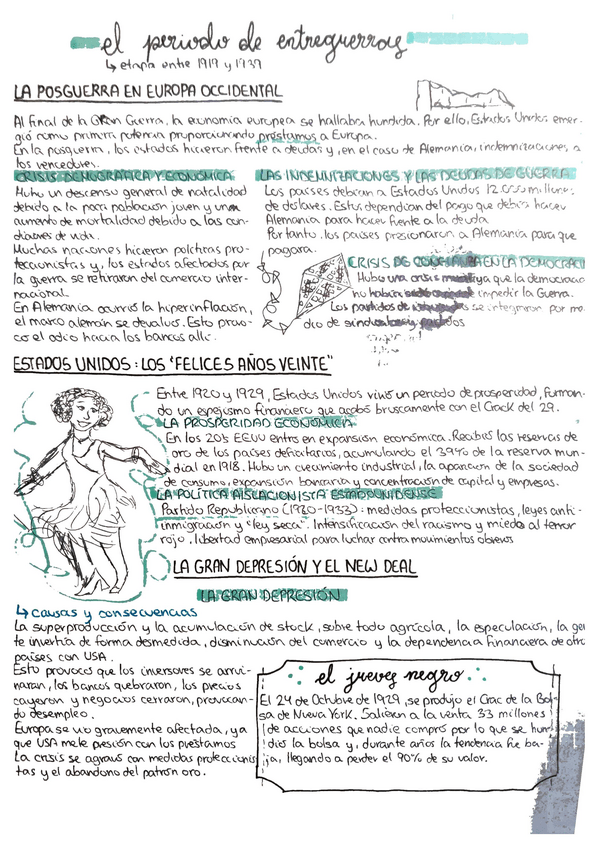 el periodo de entreguerras
↳ etapa entre 1919 y 1939
LA POSGUERRA EN EUROPA OCCIDENTAL
Al final de la Gran Guerra, la economía europea se hallaba hundida. Por ello, Estados Unidos emer-
gió como primera potencia proporcionando préstamos a Europa.
En la posguerra, los estados hicieron frente a deudas y, en el caso de Alemania, indemnizaciones a
los vencedores.
CRISIS DEMOGRÁFICA Y ECONÓMICA
Hubo un descenso general de natalidad
debido a la poca población joven y un
aumento de mortalidad debido a las con-
diciones de vida.
Muchas naciones hicieron políticas pro-
teccionistas y, los estados afectados por
la guerra se retiraron del comercio inter-
nacional.
En Alemania ocurrió la hiperinflación,
el marco alemán se devaluó. Esto provo-
có el odio hacia los bancos all.
LAS INDEMNIZACIONES Y LAS DEUDAS DE GUERRA
Los países debían a Estados Unidos 12.000 millones
de dólares. Estos dependían del pago que debía hacer
Alemania para hacer frente a la deuda
Por tanto, los países presionaron a Alemania para que
pagara.
CRISIS DE CONFIANZA EN LA DEMOCRACI
Hubo una crisis ya que la democrac
no había impedir la Guerra.
Los partidos de se integraron por me
dio de sindicatos y partidos
ESTADOS UNIDOS: LOS "FELICES AÑOS VEINTE"
Entre 1920 y 1929, Estados Unidos vivió un periodo de prosperidad, forman-
do un espejismo financiero que acabó bruscamente con el Crack del 29.
LA PROSPERIDAD ECONÓMICA
En los 20s EEUU entró en expansión económica. Recibió las reservas de
oro de los países deficitarios, acumulando el 39% de la reserva mun-
dial en 1918. Hubo un crecimiento industrial, la aparición de la sociedad
de consumo, expansión bancaria y concentración de capital y empresas.
LA POLÍTICA AISLACIONISTA ESTADOUNIDENSE
Partido Republicano (1920-1933): medidas proteccionistas, leyes anti-
inmigración y "ley seca". Intensificación del racismo y miedo al terror
rojo. libertad empresarial para luchar contra movimientos obreros
LA GRAN DEPRESIÓN Y EL NEW DEAL
LA GRAN DEPRESIÓN
↳ causas y consecuencias
La superproducción y la acumulación de stock, sobre todo agrícola, la especulación, la gen
te invertía de forma desmedida, disminución del comercio y la dependencia financiera de otro
países con USA.
Esto provocó que los inversores se arrui-
naran, los bancos quebraron, los precios
cayeron y negocios cerraron, provocan-
do desempleo.
Europa se vio gravemente afectada, ya
que USA mete presión con los préstamos
La crisis se agravó con medidas proteccionis
tas y el abandono del patrón oro.
el jueves negro
El 24 de Octubre de 1929, se produjo el Crac de la Bol-
sa de Nueva York. Salieron a la venta 33 millones
de acciones que nadie compró por lo que se hun-
dió la bolsa y, durante años la tendencia fue ba-
ja, llegando a perder el 90% de su valor.